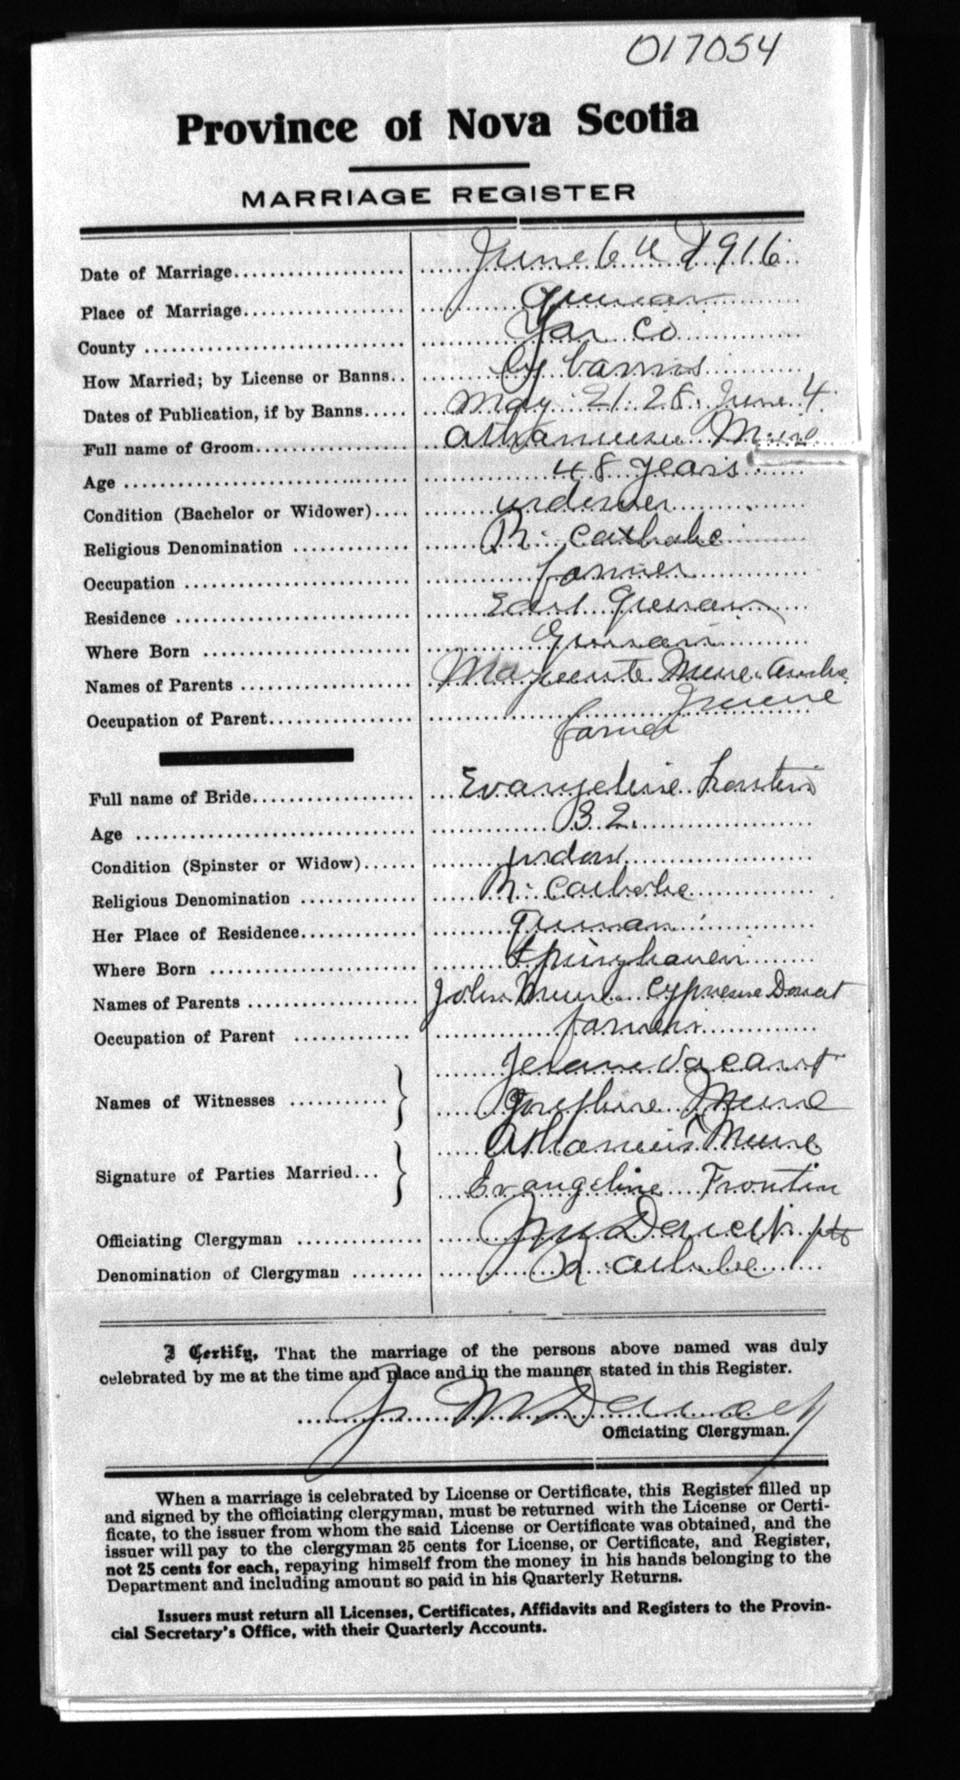 017054
Province of Nova Scotia
MARRIAGE REGISTER
Date of Marriage June 6th 1916
Place of Marriage Quinan
County Yar Co
How Married; by License or Banns by banns
Dates of Publication, if by Banns May 21. 28. June 4
Full name of Groom Muise
Age 48 years
Condition (Bachelor or Widower) widower
Religious Denomination R. Catholic
Occupation farmer
Residence East Quinan
Where Born Quinan
Names of Parents Marguerite Muise
Muise
Occupation of Parent farmer
Full name of Bride Evangeline
Age 32
Condition (Spinster or Widow) widow
Religious Denomination R. Catholic
Her Place of Residence Quinan
Where Born Springhaven
Names of Parents John Muise Doucet
Occupation of Parent farmer
Names of Witnesses
Josephine Muise
Signature of Parties Married Muise
Evangeline Frontin
Officiating Clergyman
Denomination of Clergyman R. Catholic
I Certify, That the marriage of the persons above named was duly
celebrated by me at the time and place and in the manner stated in this Register.
Officiating Clergyman.
When a marriage is celebrated by License or Certificate, this Register filled up
and signed by the officiating clergyman, must be returned with the License or Certi-
ficate, to the issuer from whom the said License or Certificate was obtained, and the
issuer will pay to the clergyman 25 cents for License, or Certificate, and Register,
not 25 cents for each, repaying himself from the money in his hands belonging to the
Department and including amount so paid in his Quarterly Returns.
Issuers must return all Licenses, Certificates, Affidavits and Registers to the Provin-
cial Secretary's Office, with their Quarterly Accounts.